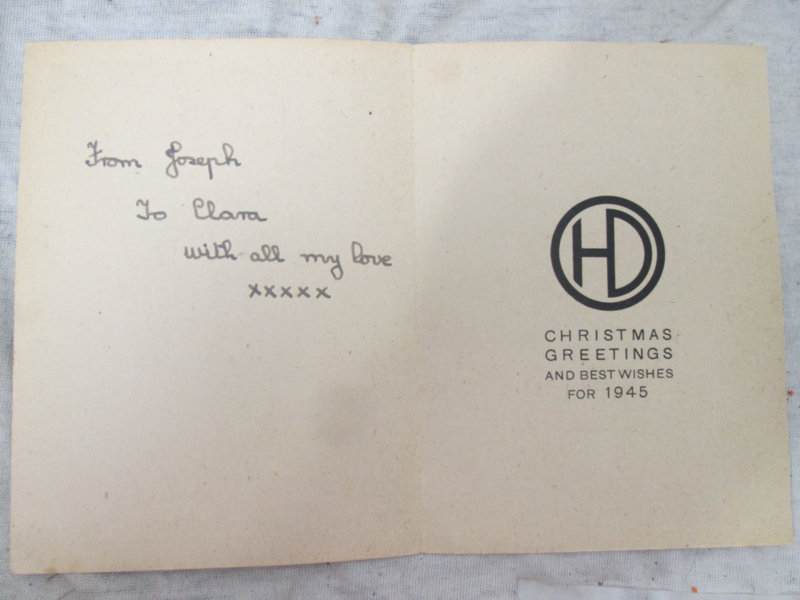 From Joseph
To Clara
with all my love
xxxxx
HD
CHRISTMAS
GREETINGS
AND BEST WISHES
FOR 1945